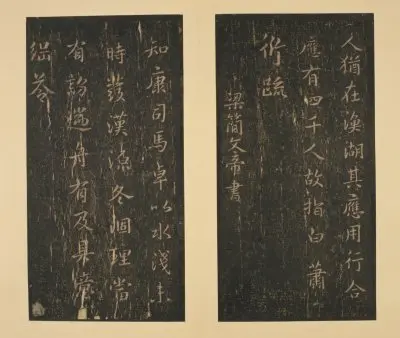 人猶在漁湖其應用行合
應有四千人故指白 蕭
衍疏
梁簡文帝書
知康司馬卓以水淺未
時發漢源冬涸理當
有舟有及